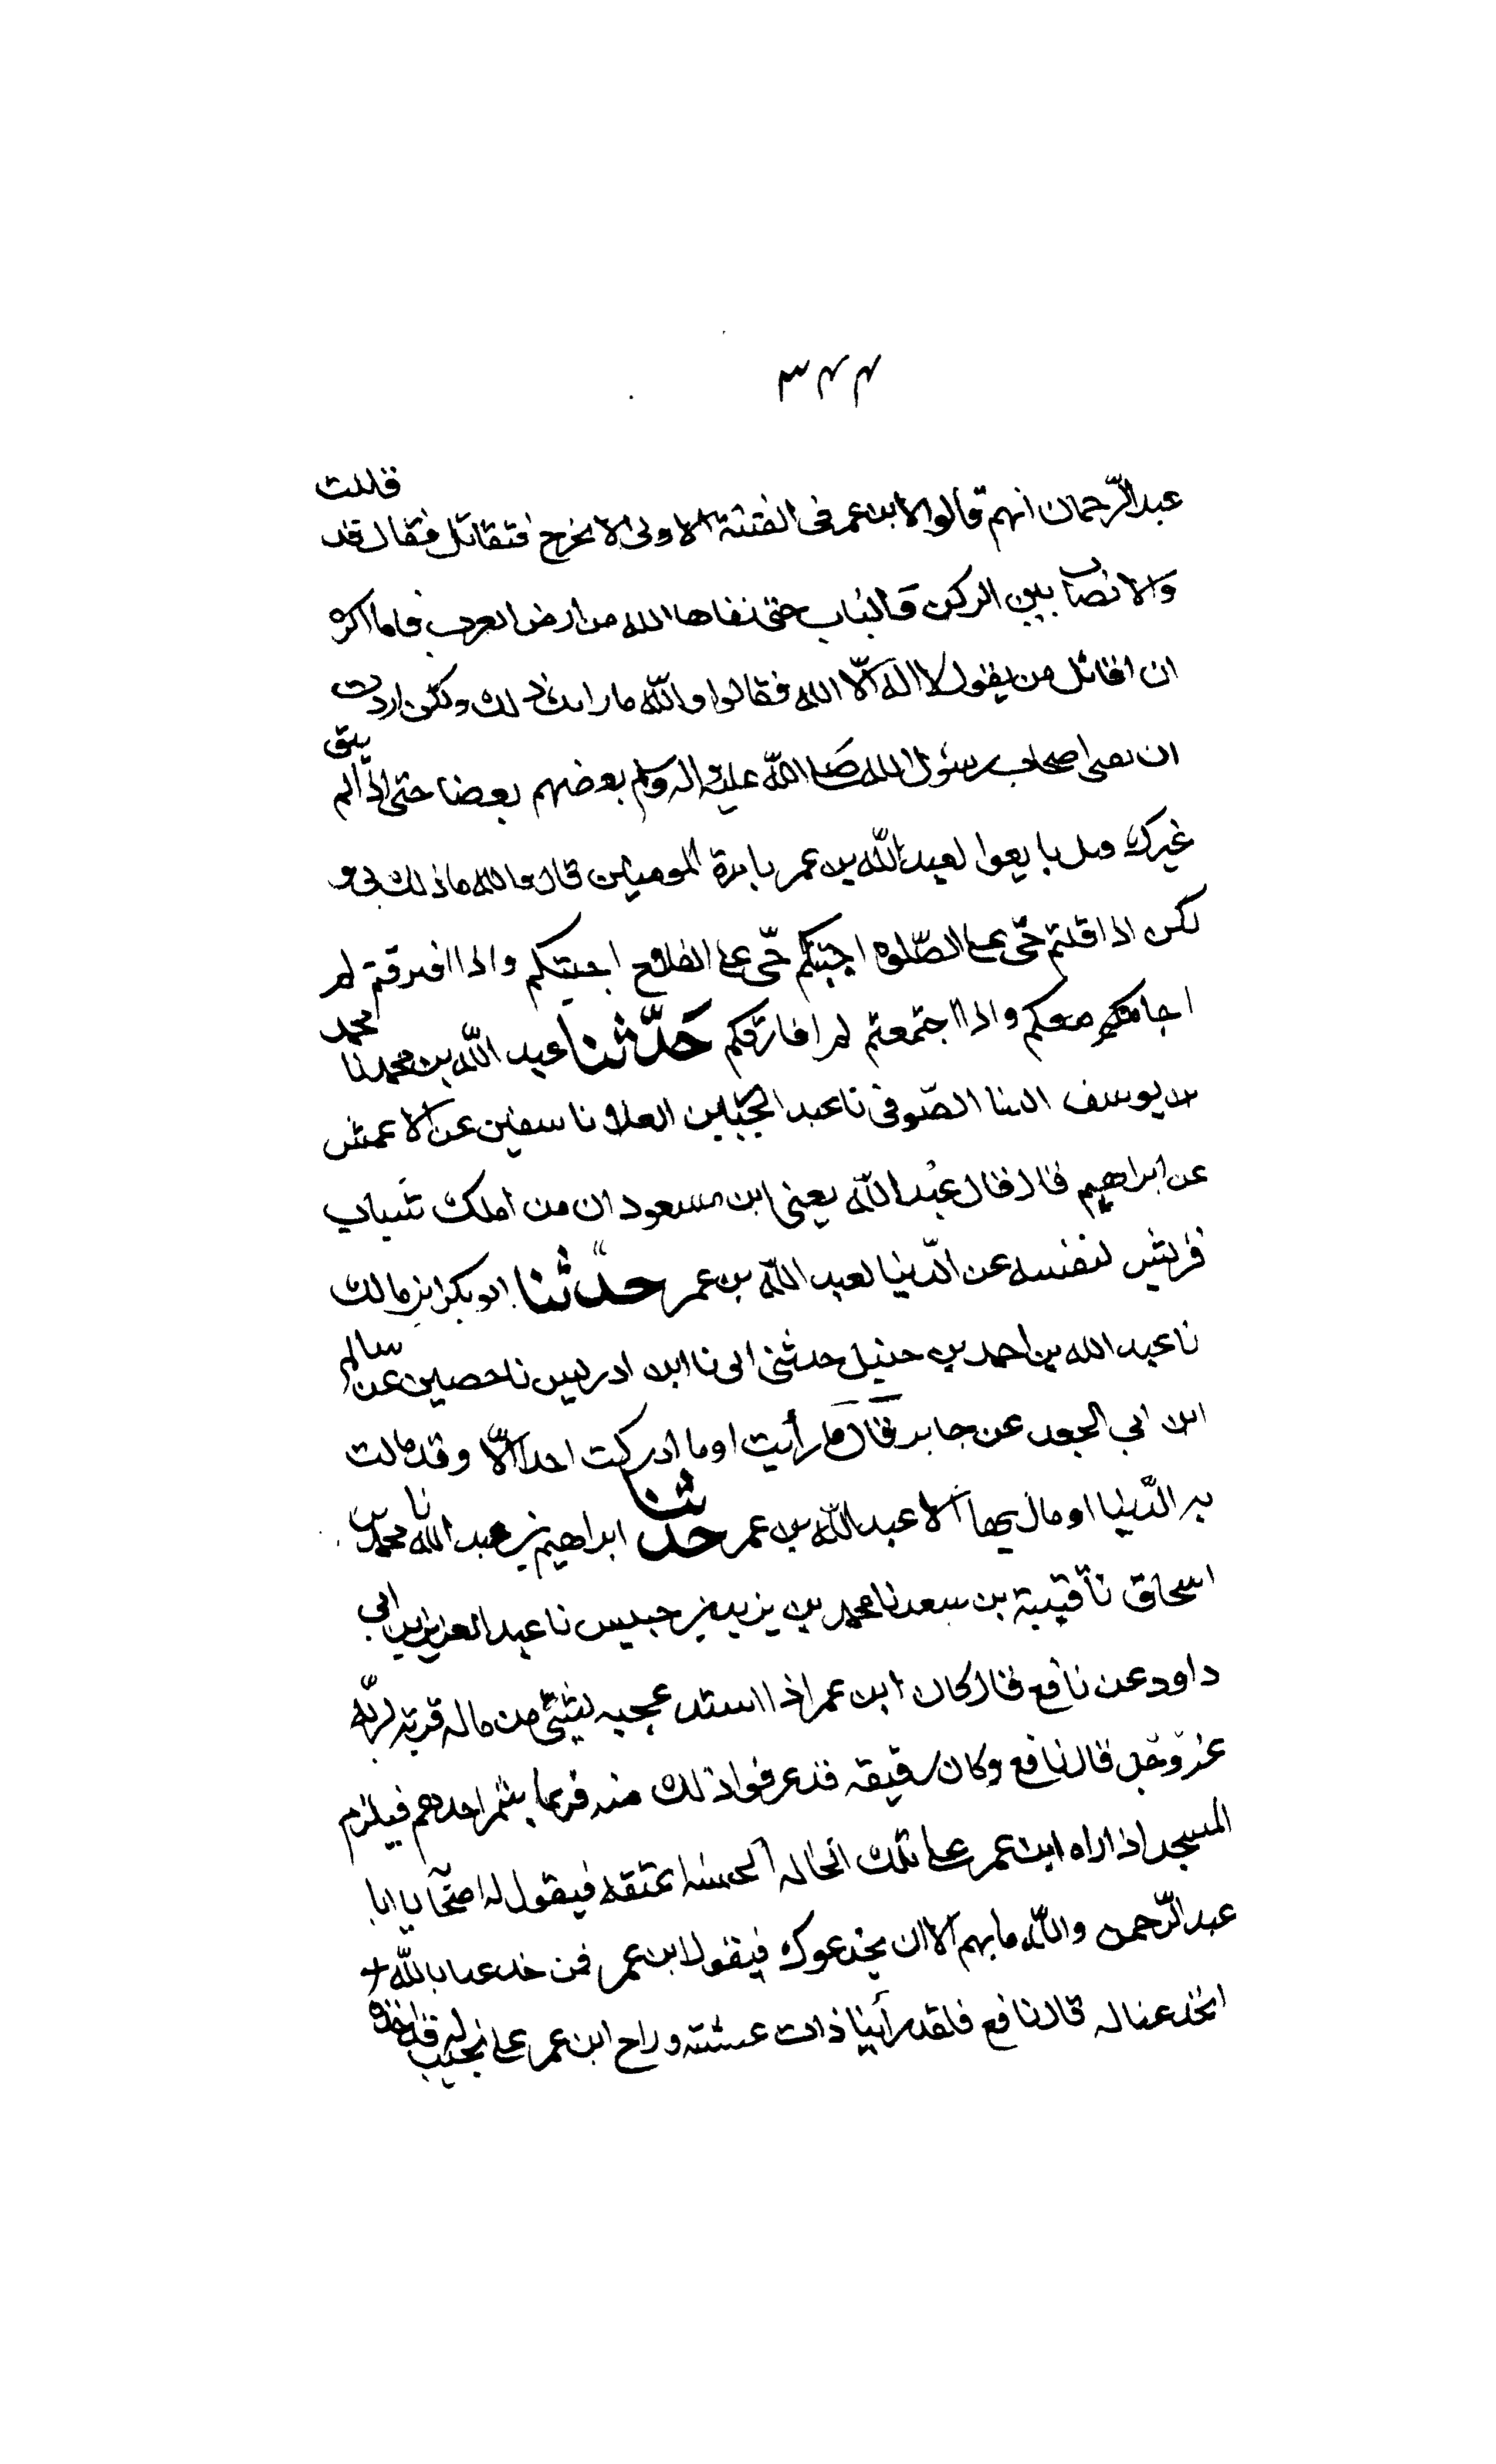 ٣٤٤
عبد الرّحمان انهم قالوا لابن عمر فى الفتنة الاولى الا تخرج فتقاتل فقال قد قاتلت
والانصاب بين الركن والباب حتى نفاها الله من ارض العرب فاما اكره
ان اقاتل من يقول لا اله الّا الله فقالوا والله ما رايك ذلك ولكن اردت
ان يفنى اصحاب رسول الله صَلى الله عليه واله وسلم بعضهم بعضا حتى اذا لم يبق
غيرك قيل بايعوا لعبد الله بن عمر بامرة المومنين قال والله ما ذلك بى و
لكن اذا قلتم حّى على الصّلوة اجبتكم حّى على الفلاح اجبتكم واذا افترقتم لم
اجامعكم معكم واذا اجتمعتم لم افارقكم حَدّثنا عبد الله بن محمد نا محمد
بن يوسف البنا الصّوفى نا عبد الجبّار بن العلا نا سفين عن الاعمش
عن ابراهيم قال قال عبد الله يعنى ابن مسعود ان من املك شباب
قريش لنفسه عن الدّنيا لعبد الله بن عمر حدّثنا ابو بكر بن مالك
نا عبد الله بن احمد بن حنبل حدثنى ابى نا ابن ادريس نا حصين عن سالم
ابن ابي الجعد عن جابر قال ما رأيت او ما ادركت احدا الّا وقد مالت
به الدّنيا او مال بها الا عبد الله بن عمر حدثنا ابراهيم بن عبد الله نا محمد بن
اسحاق نا قتيبة بن سعد نا محمد بن يزيد بن خبيس نا عبد العزيز بن ابي
داود عن نافع قال كان ابن عمر اذا اشتد عجبه بشئى من ماله قربه لربّه
عز وجل قال نافع وكان رقيقه قد عرفوا ذلك منه فربما يشمر احدهم فيلزم
المسجد اذا راه ابن عمر على تلك الحاله الحسنه اعتقه فيقول له اصحابه يا ابا
عبد الرّحمن والله ما بهم الا ان يخدعوك فيقول ابن عمر فمن خدعنا بالله
انخدعنا له قال نافع فلقد رأينا ذات عشية وراح ابن عمر على نجيب له قد اخذه